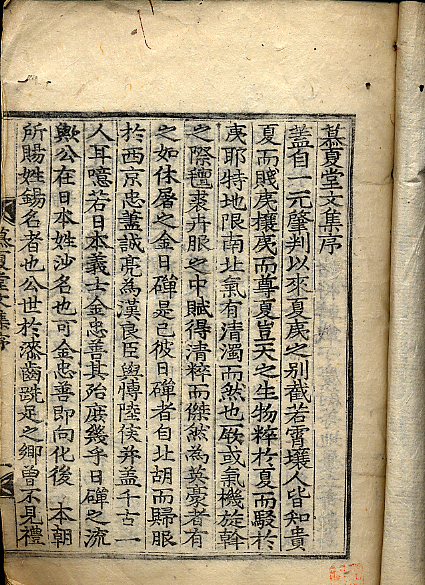 慕夏堂文集序
盖自一元肇判以來夏夷之別截若霄壤人皆知貴
夏而賤夷攘夷而尊夏豈天之生物粹於夏而駁於
夷耶特地限南北氣有清濁而然也厥或氣機旋斡
之際氊裘卉服之中賦得清粹而傑然為英豪者有
之如休屠之金日磾是已彼日磾者自北胡而歸服
於西京忠蓋誠亮為漢良臣與博陸侯并盖千古一
人耳噫若日本義士金忠善其殆庶幾乎日磾之流
歟公在日本姓沙名也可金忠善即向化後 本朝
所賜姓錫名者也公世於漆齒跣足之鄉曾不見禮
慕夏堂文集序